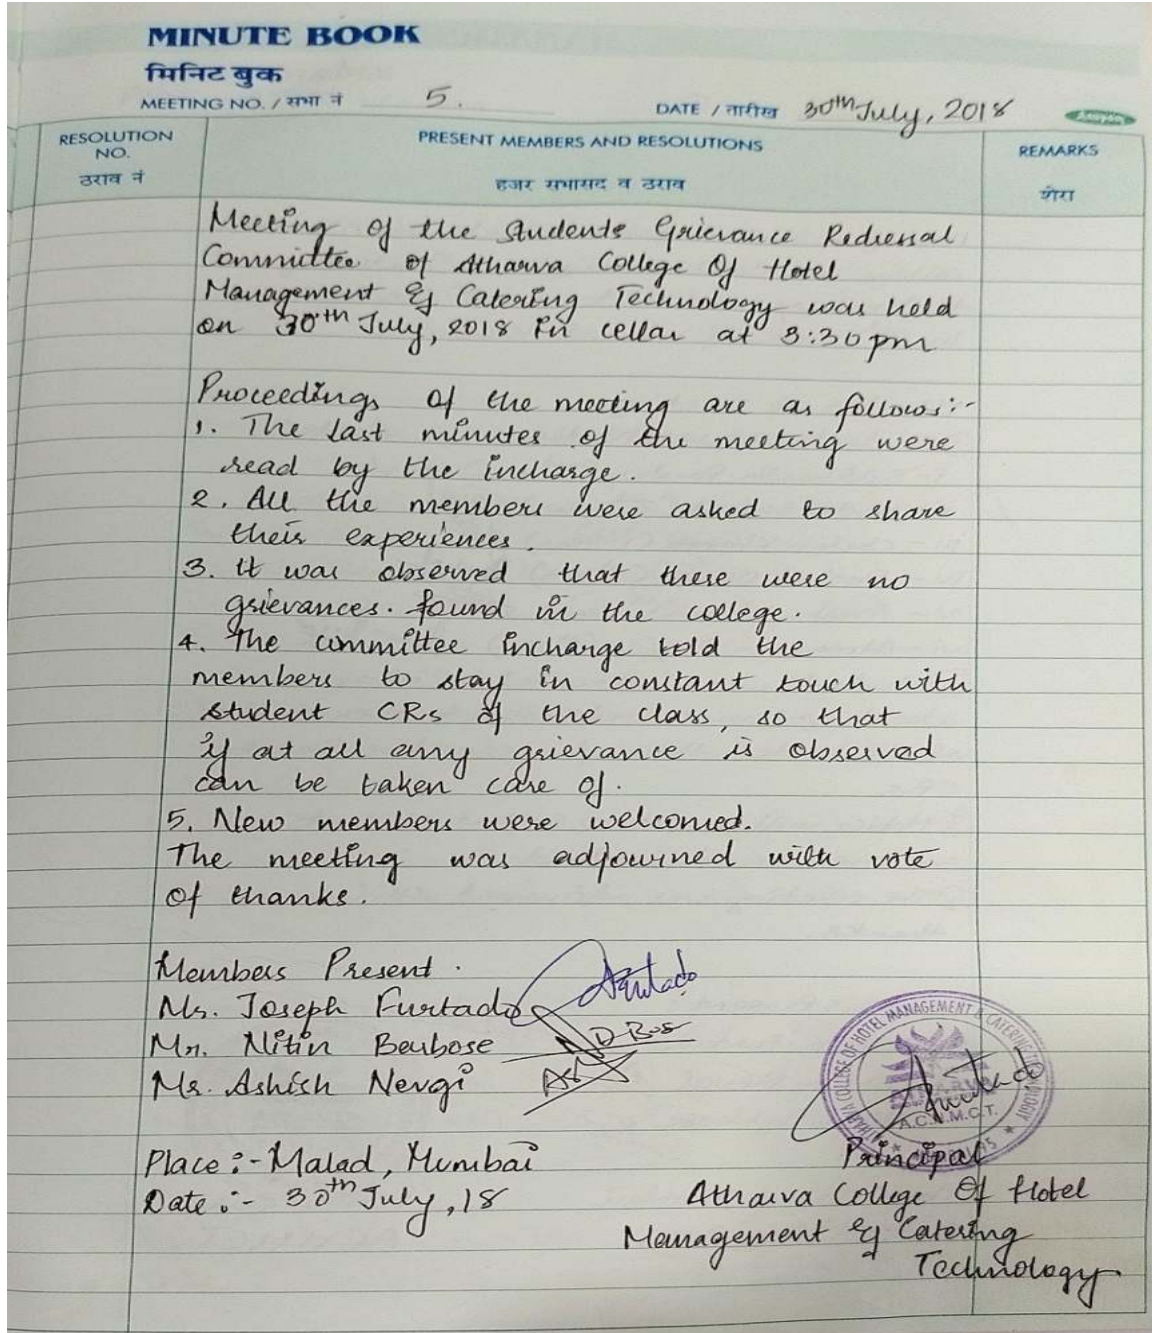 MINUTE BOOK
मिनिट बुक
MEETING NO. / सभा नं 5.
DATE / तारीख 30th July, 2018
RESOLUTION NO.
ठराव नं
PRESENT MEMBERS AND RESOLUTIONS
हजर सभासद व ठराव
REMARKS
शेरा
Meeting of the Students Grievance Redressal
Committee of Atharva College Of Hotel
Management & Catering Technology was held
on 30th July, 2018 in cellar at 3:30 pm
Proceedings of the meeting are as follows:-
1. The last minutes of the meeting were
read by the incharge.
2. All the members were asked to share
their experiences.
3. It was observed that there were no
grievances. found in the college.
4. The committee incharge told the
members to stay in constant touch with
student CRs of the class, so that
if at all any grievance is observed
can be taken care of.
5. New members were welcomed.
The meeting was adjourned with vote
of thanks.
Members Present.
Mr. Joseph Furtado
Mr. Nitin Borbose
Mr. Ashish Nevgi
A.C.H.M.C.T.
Place :- Malad, Mumbai
Date :- 30th July, 18
Principal
Atharva College Of Hotel
Management & Catering
Technology